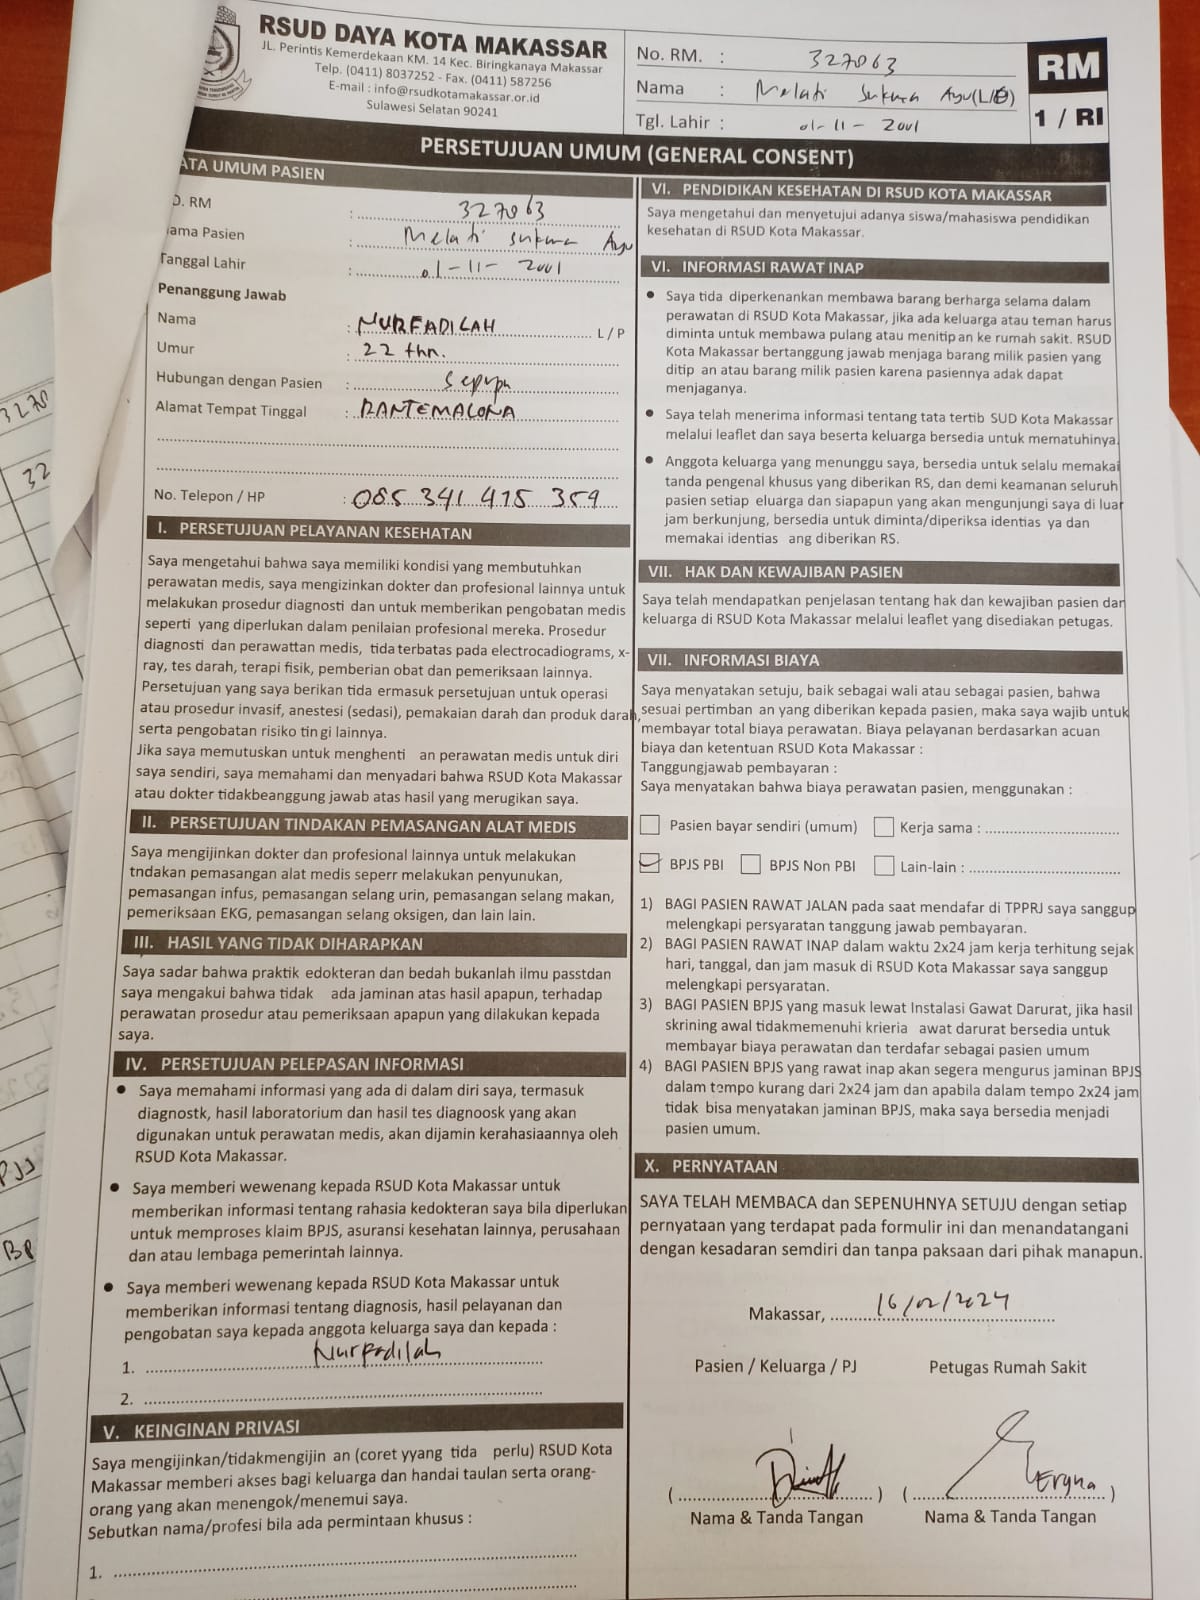 RSUD DAYA KOTA MAKASSAR
JL. Perintis Kemerdekaan KM. 14 Kec. Biringkanaya Makassar
Telp. (0411) 8037252 - Fax. (0411) 587256
E-mail : info@rsudkotamakassar.or.id
Sulawesi Selatan 90241
No. RM. : 327063
Nama : Melati Sukma Ayu (L/P)
Tgl. Lahir : 01-11-2001
RM
1 / RI
PERSETUJUAN UMUM (GENERAL CONSENT)
ATA UMUM PASIEN
O. RM : 327063
ama Pasien : Melati Sukma Ayu
Tanggal Lahir : 01-11-2001
Penanggung Jawab
Nama : NURFADILAH L / P
Umur : 22 thn.
Hubungan dengan Pasien : Sepupu
Alamat Tempat Tinggal :
No. Telepon / HP : 085 341 415 359
I. PERSETUJUAN PELAYANAN KESEHATAN
Saya mengetahui bahwa saya memiliki kondisi yang membutuhkan
perawatan medis, saya mengizinkan dokter dan profesional lainnya untuk
melakukan prosedur diagnosti dan untuk memberikan pengobatan medis
seperti yang diperlukan dalam penilaian profesional mereka. Prosedur
diagnosti dan perawattan medis, tida terbatas pada electrocadiograms, x-
ray, tes darah, terapi fisik, pemberian obat dan pemeriksaan lainnya.
Persetujuan yang saya berikan tida ermasuk persetujuan untuk operasi
atau prosedur invasif, anestesi (sedasi), pemakaian darah dan produk darah,
serta pengobatan risiko tin gi lainnya.
Jika saya memutuskan untuk menghenti an perawatan medis untuk diri
saya sendiri, saya memahami dan menyadari bahwa RSUD Kota Makassar
atau dokter tidakbeanggung jawab atas hasil yang merugikan saya.
II. PERSETUJUAN TINDAKAN PEMASANGAN ALAT MEDIS
Saya mengijinkan dokter dan profesional lainnya untuk melakukan
tndakan pemasangan alat medis seperr melakukan penyunukan,
pemasangan infus, pemasangan selang urin, pemasangan selang makan,
pemeriksaan EKG, pemasangan selang oksigen, dan lain lain.
III. HASIL YANG TIDAK DIHARAPKAN
Saya sadar bahwa praktik edokteran dan bedah bukanlah ilmu passtdan
saya mengakui bahwa tidak ada jaminan atas hasil apapun, terhadap
perawatan prosedur atau pemeriksaan apapun yang dilakukan kepada
saya.
IV. PERSETUJUAN PELEPASAN INFORMASI
• Saya memahami informasi yang ada di dalam diri saya, termasuk
diagnostk, hasil laboratorium dan hasil tes diagnoosk yang akan
digunakan untuk perawatan medis, akan dijamin kerahasiaannya oleh
RSUD Kota Makassar.
• Saya memberi wewenang kepada RSUD Kota Makassar untuk
memberikan informasi tentang rahasia kedokteran saya bila diperlukan
untuk memproses klaim BPJS, asuransi kesehatan lainnya, perusahaan
dan atau lembaga pemerintah lainnya.
• Saya memberi wewenang kepada RSUD Kota Makassar untuk
memberikan informasi tentang diagnosis, hasil pelayanan dan
pengobatan saya kepada anggota keluarga saya dan kepada :
1. Nurfadilah
2.
V. KEINGINAN PRIVASI
Saya mengijinkan/tidakmengijin an (coret yyang tida perlu) RSUD Kota
Makassar memberi akses bagi keluarga dan handai taulan serta orang-
orang yang akan menengok/menemui saya.
Sebutkan nama/profesi bila ada permintaan khusus :
1.
VI. PENDIDIKAN KESEHATAN DI RSUD KOTA MAKASSAR
Saya mengetahui dan menyetujui adanya siswa/mahasiswa pendidikan
kesehatan di RSUD Kota Makassar.
VI. INFORMASI RAWAT INAP
• Saya tida diperkenankan membawa barang berharga selama dalam
perawatan di RSUD Kota Makassar, jika ada keluarga atau teman harus
diminta untuk membawa pulang atau menitip an ke rumah sakit. RSUD
Kota Makassar bertanggung jawab menjaga barang milik pasien yang
ditip an atau barang milik pasien karena pasiennya adak dapat
menjaganya.
• Saya telah menerima informasi tentang tata tertib SUD Kota Makassar
melalui leaflet dan saya beserta keluarga bersedia untuk mematuhinya.
• Anggota keluarga yang menunggu saya, bersedia untuk selalu memakai
tanda pengenal khusus yang diberikan RS, dan demi keamanan seluruh
pasien setiap eluarga dan siapapun yang akan mengunjungi saya di luar
jam berkunjung, bersedia untuk diminta/diperiksa identias ya dan
memakai identias ang diberikan RS.
VII. HAK DAN KEWAJIBAN PASIEN
Saya telah mendapatkan penjelasan tentang hak dan kewajiban pasien dan
keluarga di RSUD Kota Makassar melalui leaflet yang disediakan petugas.
VII. INFORMASI BIAYA
Saya menyatakan setuju, baik sebagai wali atau sebagai pasien, bahwa
sesuai pertimban an yang diberikan kepada pasien, maka saya wajib untuk
membayar total biaya perawatan. Biaya pelayanan berdasarkan acuan
biaya dan ketentuan RSUD Kota Makassar :
Tanggungjawab pembayaran :
Saya menyatakan bahwa biaya perawatan pasien, menggunakan :
Pasien bayar sendiri (umum) Kerja sama :
BPJS PBI BPJS Non PBI Lain-lain :
1) BAGI PASIEN RAWAT JALAN pada saat mendafar di TPPRJ saya sanggup
melengkapi persyaratan tanggung jawab pembayaran.
2) BAGI PASIEN RAWAT INAP dalam waktu 2x24 jam kerja terhitung sejak
hari, tanggal, dan jam masuk di RSUD Kota Makassar saya sanggup
melengkapi persyaratan.
3) BAGI PASIEN BPJS yang masuk lewat Instalasi Gawat Darurat, jika hasil
skrining awal tidakmemenuhi krieria awat darurat bersedia untuk
membayar biaya perawatan dan terdafar sebagai pasien umum
4) BAGI PASIEN BPJS yang rawat inap akan segera mengurus jaminan BPJS
dalam tempo kurang dari 2x24 jam dan apabila dalam tempo 2x24 jam
tidak bisa menyatakan jaminan BPJS, maka saya bersedia menjadi
pasien umum.
X. PERNYATAAN
SAYA TELAH MEMBACA dan SEPENUHNYA SETUJU dengan setiap
pernyataan yang terdapat pada formulir ini dan menandatangani
dengan kesadaran semdiri dan tanpa paksaan dari pihak manapun.
Makassar, 16/02/2024
Pasien / Keluarga / PJ Petugas Rumah Sakit
Nama & Tanda Tangan Nama & Tanda Tangan